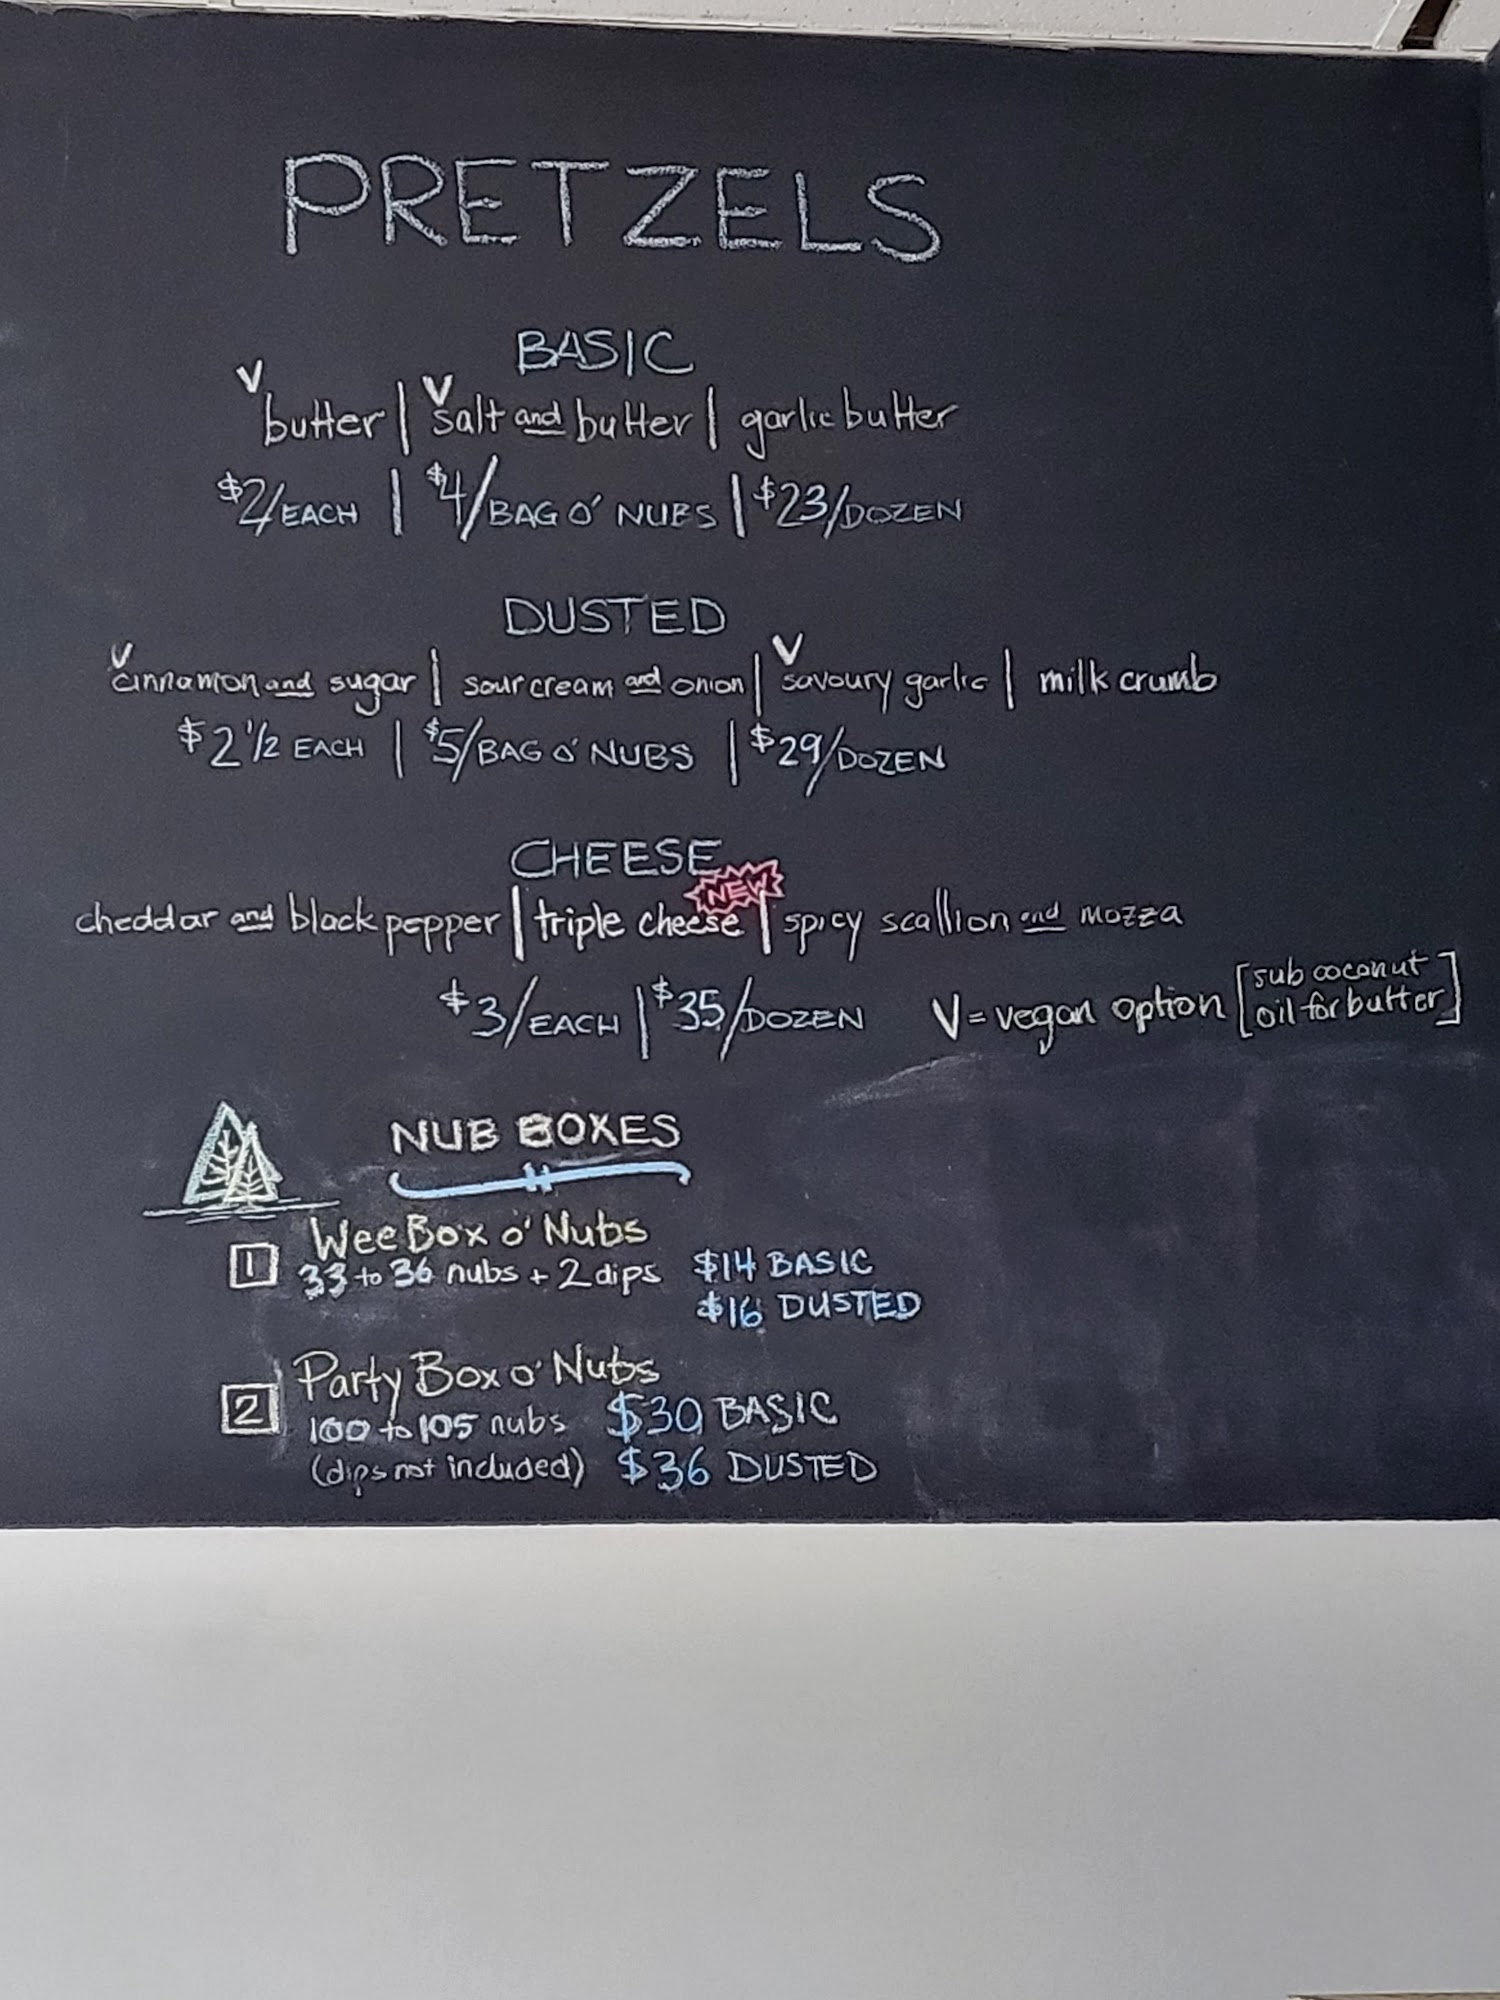 PRETZELS
BASIC
V V
butter | salt and butter | garlic butter
$2/EACH | $4/BAG O' NUBS | $23/DOZEN
DUSTED
V V
cinnamon and sugar | sour cream and onion | savoury garlic | milk crumb
$2 1/2 EACH | $5/BAG O' NUBS | $29/DOZEN
CHEESE
NEW
cheddar and black pepper | triple cheese | spicy scallion and mozza
$3/EACH | $35/DOZEN
V = vegan option [sub coconut
oil for butter]
NUB BOXES
1 Wee Box o' Nubs
33 to 36 nubs + 2 dips $14 BASIC
$16 DUSTED
2 Party Box o' Nubs
100 to 105 nubs $30 BASIC
(dips not included) $36 DUSTED